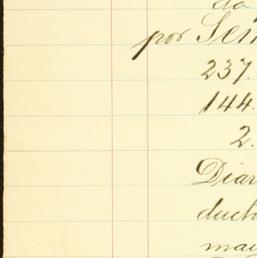 da
por Sem
237.
144.
2.
Diar
duch
may